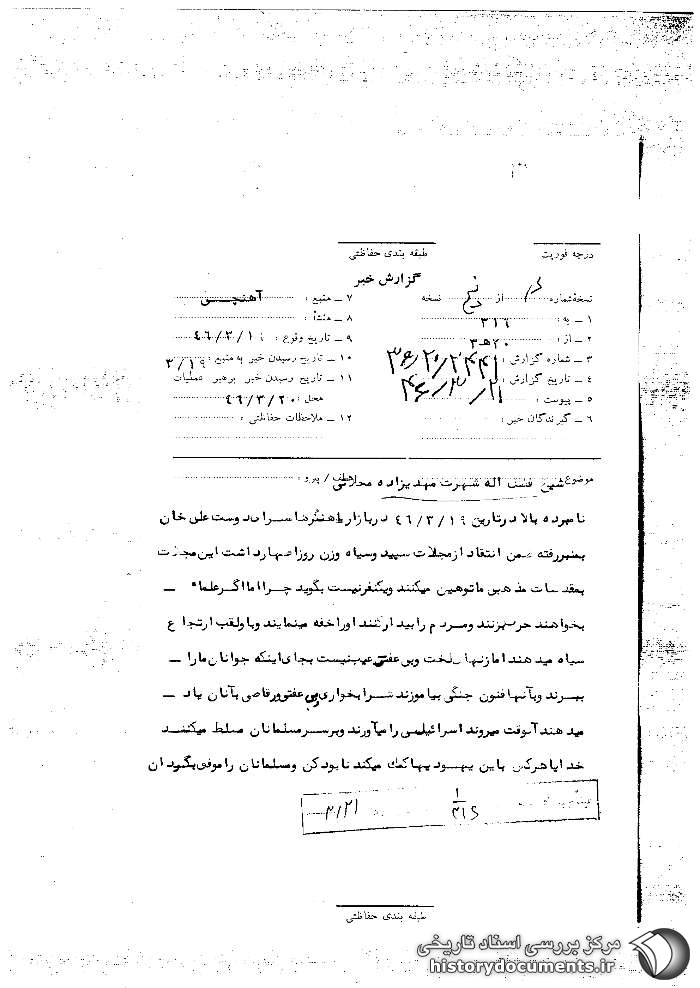 درجه فوریت
طبقه بندی حفاظتی
گزارش خبر
نسخه شماره از نسخه
۱ ـ به : ۳۱۶
۲ ـ از : ۲۰ هـ ۳
۳ ـ شماره گزارش :
۴ ـ تاریخ گزارش :
۵ ـ پیوست :
۶ ـ گیرندگان خبر :
۷ ـ منبع : آهنچی
۸ ـ منشأ :
۹ ـ تاریخ وقوع : ۴۶/۳/۱۹
۱۰ ـ تاریخ رسیدن خبر به منبع : ۳/۱۹
۱۱ ـ تاریخ رسیدن خبر برهبر عملیات
محل : ۴۶/۳/۲۰
۱۲ ـ ملاحظات حفاظتی :
موضوع شیخ فضل اله شهرت مهدیزاده محلاتی عطف / پیرو :
نامبرده بالا در تاریخ ۴۶/۳/۱۹ در بازار آهنگرها سرای دوست علی خان
بمنبر رفته ضمن انتقاد از مجلات سپید و سیاه و زن روز اظهار داشت این مجلات
بمقدسات مذهبی ما توهین میکنند و یکنفر نیست بگوید چرا اما اگر علماء ـ
بخواهند حرف بزنند و مردم را بیدار کنند او را خفه مینمایند و با و لقب ارتجاع
سیاه میدهند اما زنها لخت و بی عفتی عیب نیست بجای اینکه جوانان ما را ـ
ببرند و بآنها فنون جنگی بیاموزند شرابخواری بی عفتی و رقاصی بآنان یاد ـ
میدهند آنوقت میروند اسرائیلی را میآورند و بر سر مسلمانان مسلط میکنند
خدایا هرکس باین یهودیها کمک میکند نابود کن و مسلمانان را موفق بگردان
۱
۳۱۶
۳/۲۱
طبقه بندی حفاظتی
مرکز بررسی اسناد تاریخی
historydocuments.ir